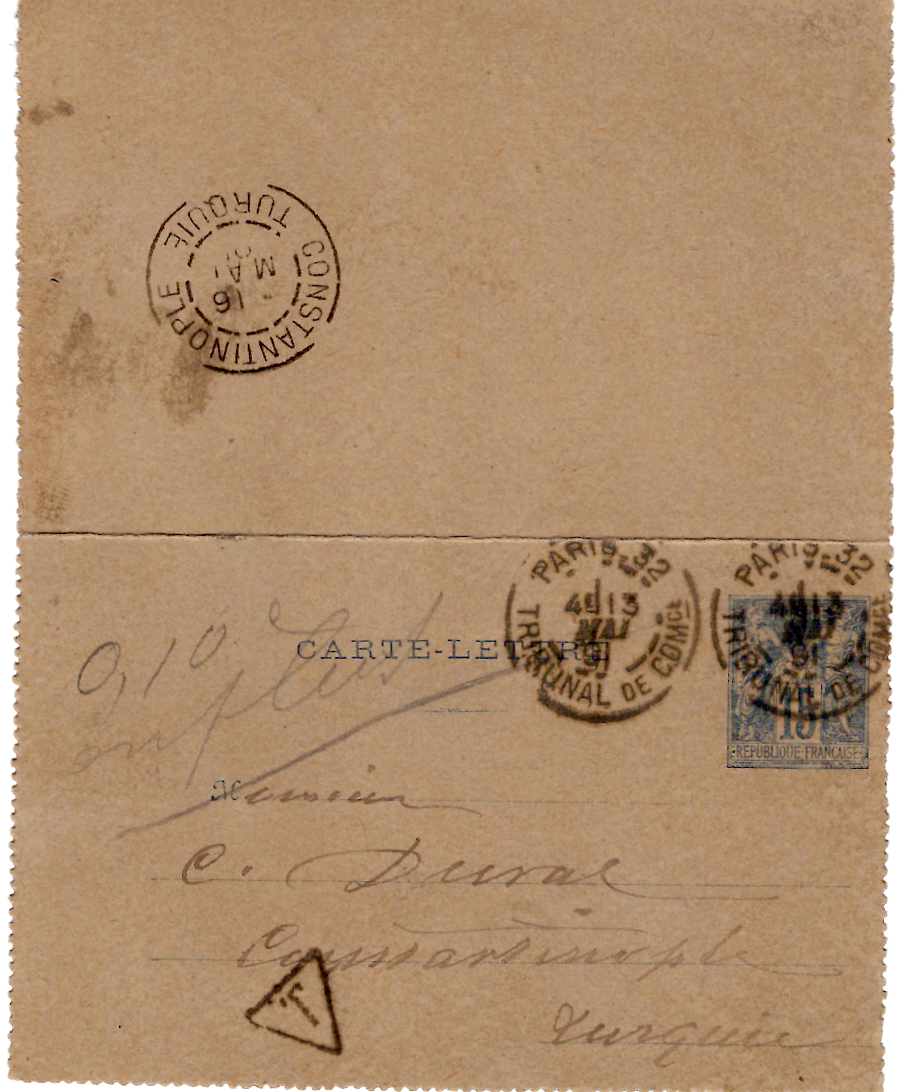 CONSTANTINOPLE TURQUIE
16
MAI
PARIS-32
4E 13
MAI
91
TRIBUNAL DE COMCE
PARIS-32
4E 13
MAI
91
TRIBUNAL DE COMCE
CARTE-LETTRE
0,10
en plus
15
REPUBLIQUE FRANÇAISE
Monsieur
C. Duval
Constantinople
T.
Turquie